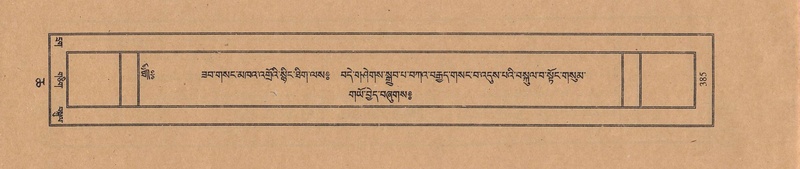 ཟབ་གསང་མཁའ་འགྲོའི་སྙིང་ཐིག་ལས༔ བདེ་གཤེགས་སྒྲུབ་པ་བཀའ་བརྒྱད་གསང་བ་འདུས་པའི་བསྐུལ་བ་སྟོང་གསུམ་
གཡོ་བྱེད་བཞུགས༔
385